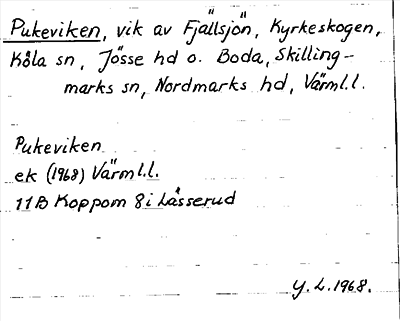 Pukeviken, vik av Fjällsjön, Kyrkeskogen,
Köla sn, Jösse hd o. Boda, Skilling-
marks sn, Nordmarks hd, Värml.l.
Pukeviken
ek (1968) Värml.l.
11B Koppom 8i Låsserud
Y.L.1968.